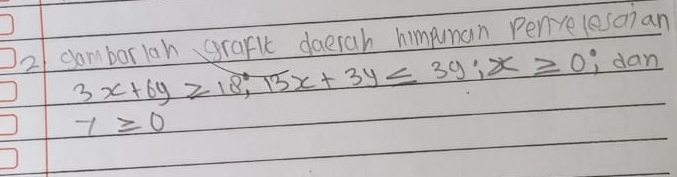 2. gambarlah grafik daerah himpunan Penyelesaian
3x+6y ≥ 18; 13x + 3y ≤ 39; x ≥ 0; dan
y ≥ 0